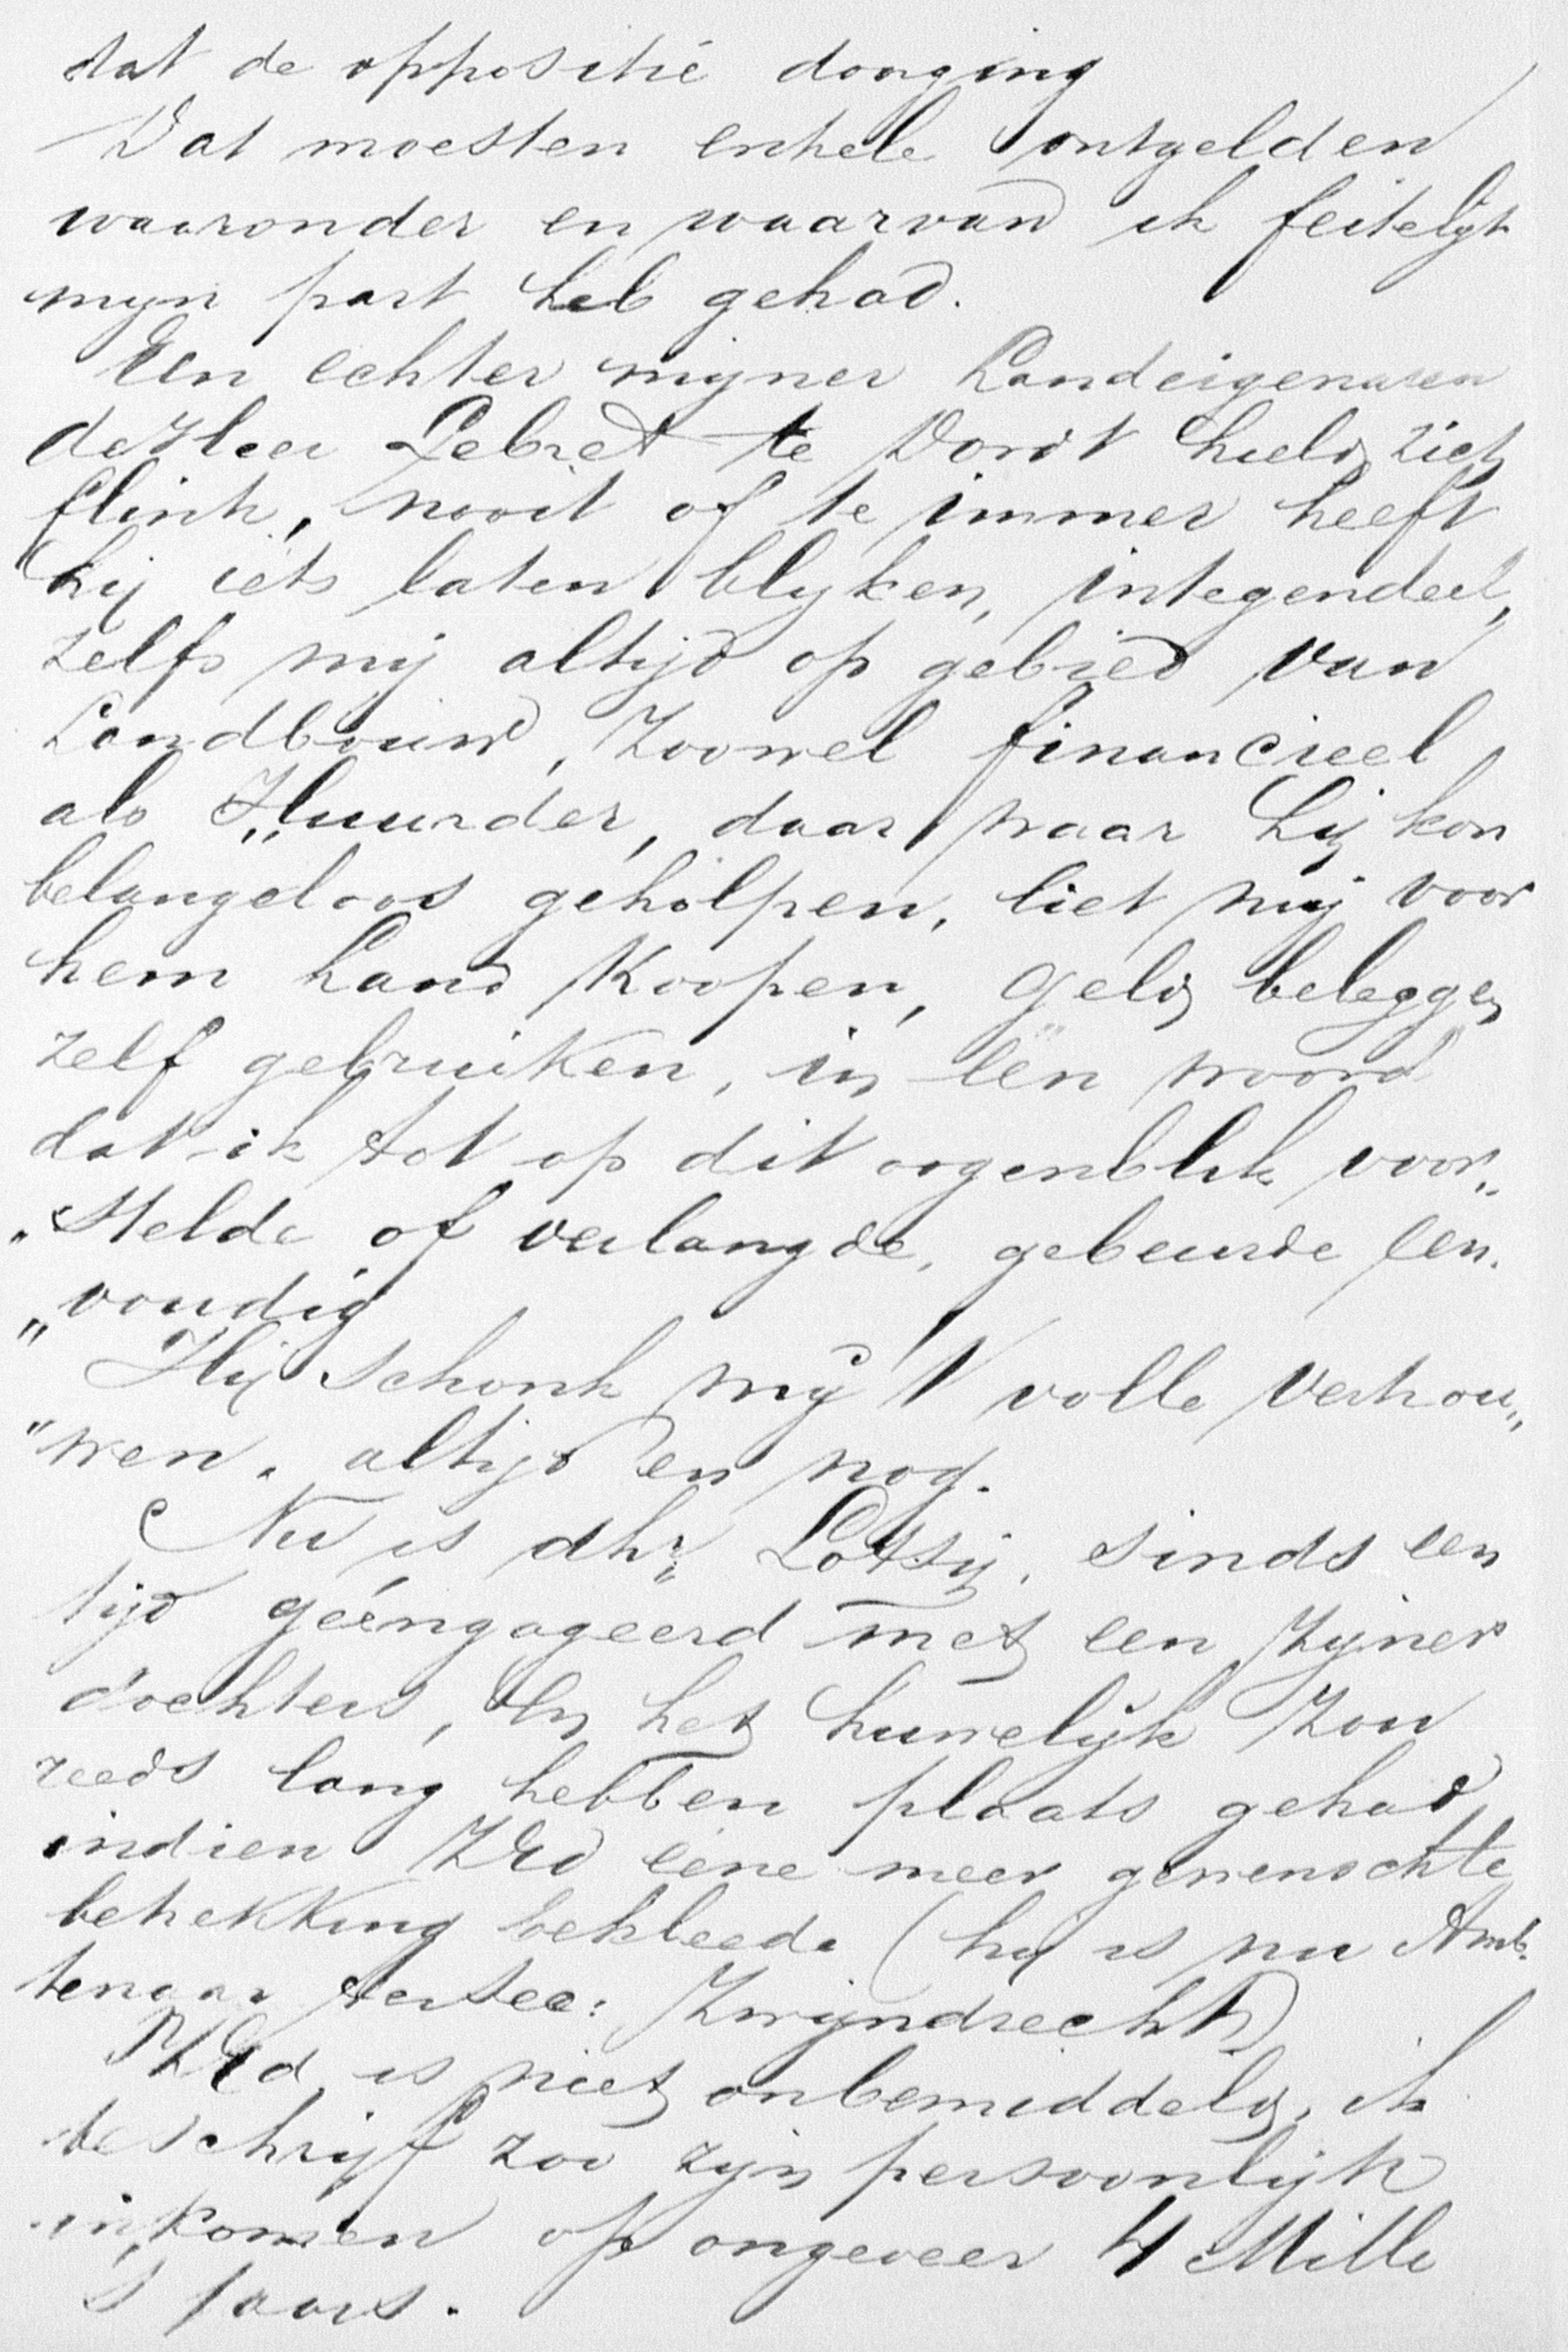 dat de oppositie doorging
Dat moesten enkele ontgelden
waaronder en waarvan ik feitelijk
mijn part heb gehad.
Een echter mijner Landeigenaren
de Heer Lebret te Dordt hield zich
flink, nooit of te immer heeft
hij iets laten blyken, integendeel,
zelfs mij altijd op gebied van
Landbouw, zoowel financieel
als Huurder, daar waar hij kon
belangeloos geholpen, liet mij voor
hem Land Koopen, geld beleggen
zelf gebruiken, in een woord
dat ik tot op dit oogenblik voor„
„stelde of verlangde, gebeurde een„
„voudig
Hij schonk mij 't volle vertrou„
„wen, altijd en nog.
Nu is dhr Lotsij, sinds een
tijd geëngageerd met een zijner
dochters, En het huwelijk zou
reeds lang hebben plaats gehad
indien ZEd eene meer gewenschte
betrekking bekleede (hij is nu Amb„
tenaar ter Sec: Zwijndrecht)
ZEd is niet onbemiddeld, ik
beschrijf zoo zijn persoonlijk
inkomen op ongeveer 4 Mille
's jaars.